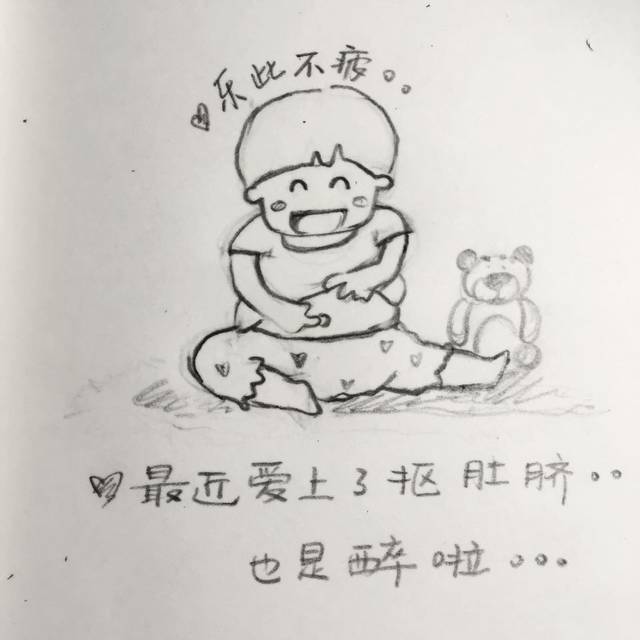 乐此不疲。。
最近爱上了抠肚脐..
也是醉啦...